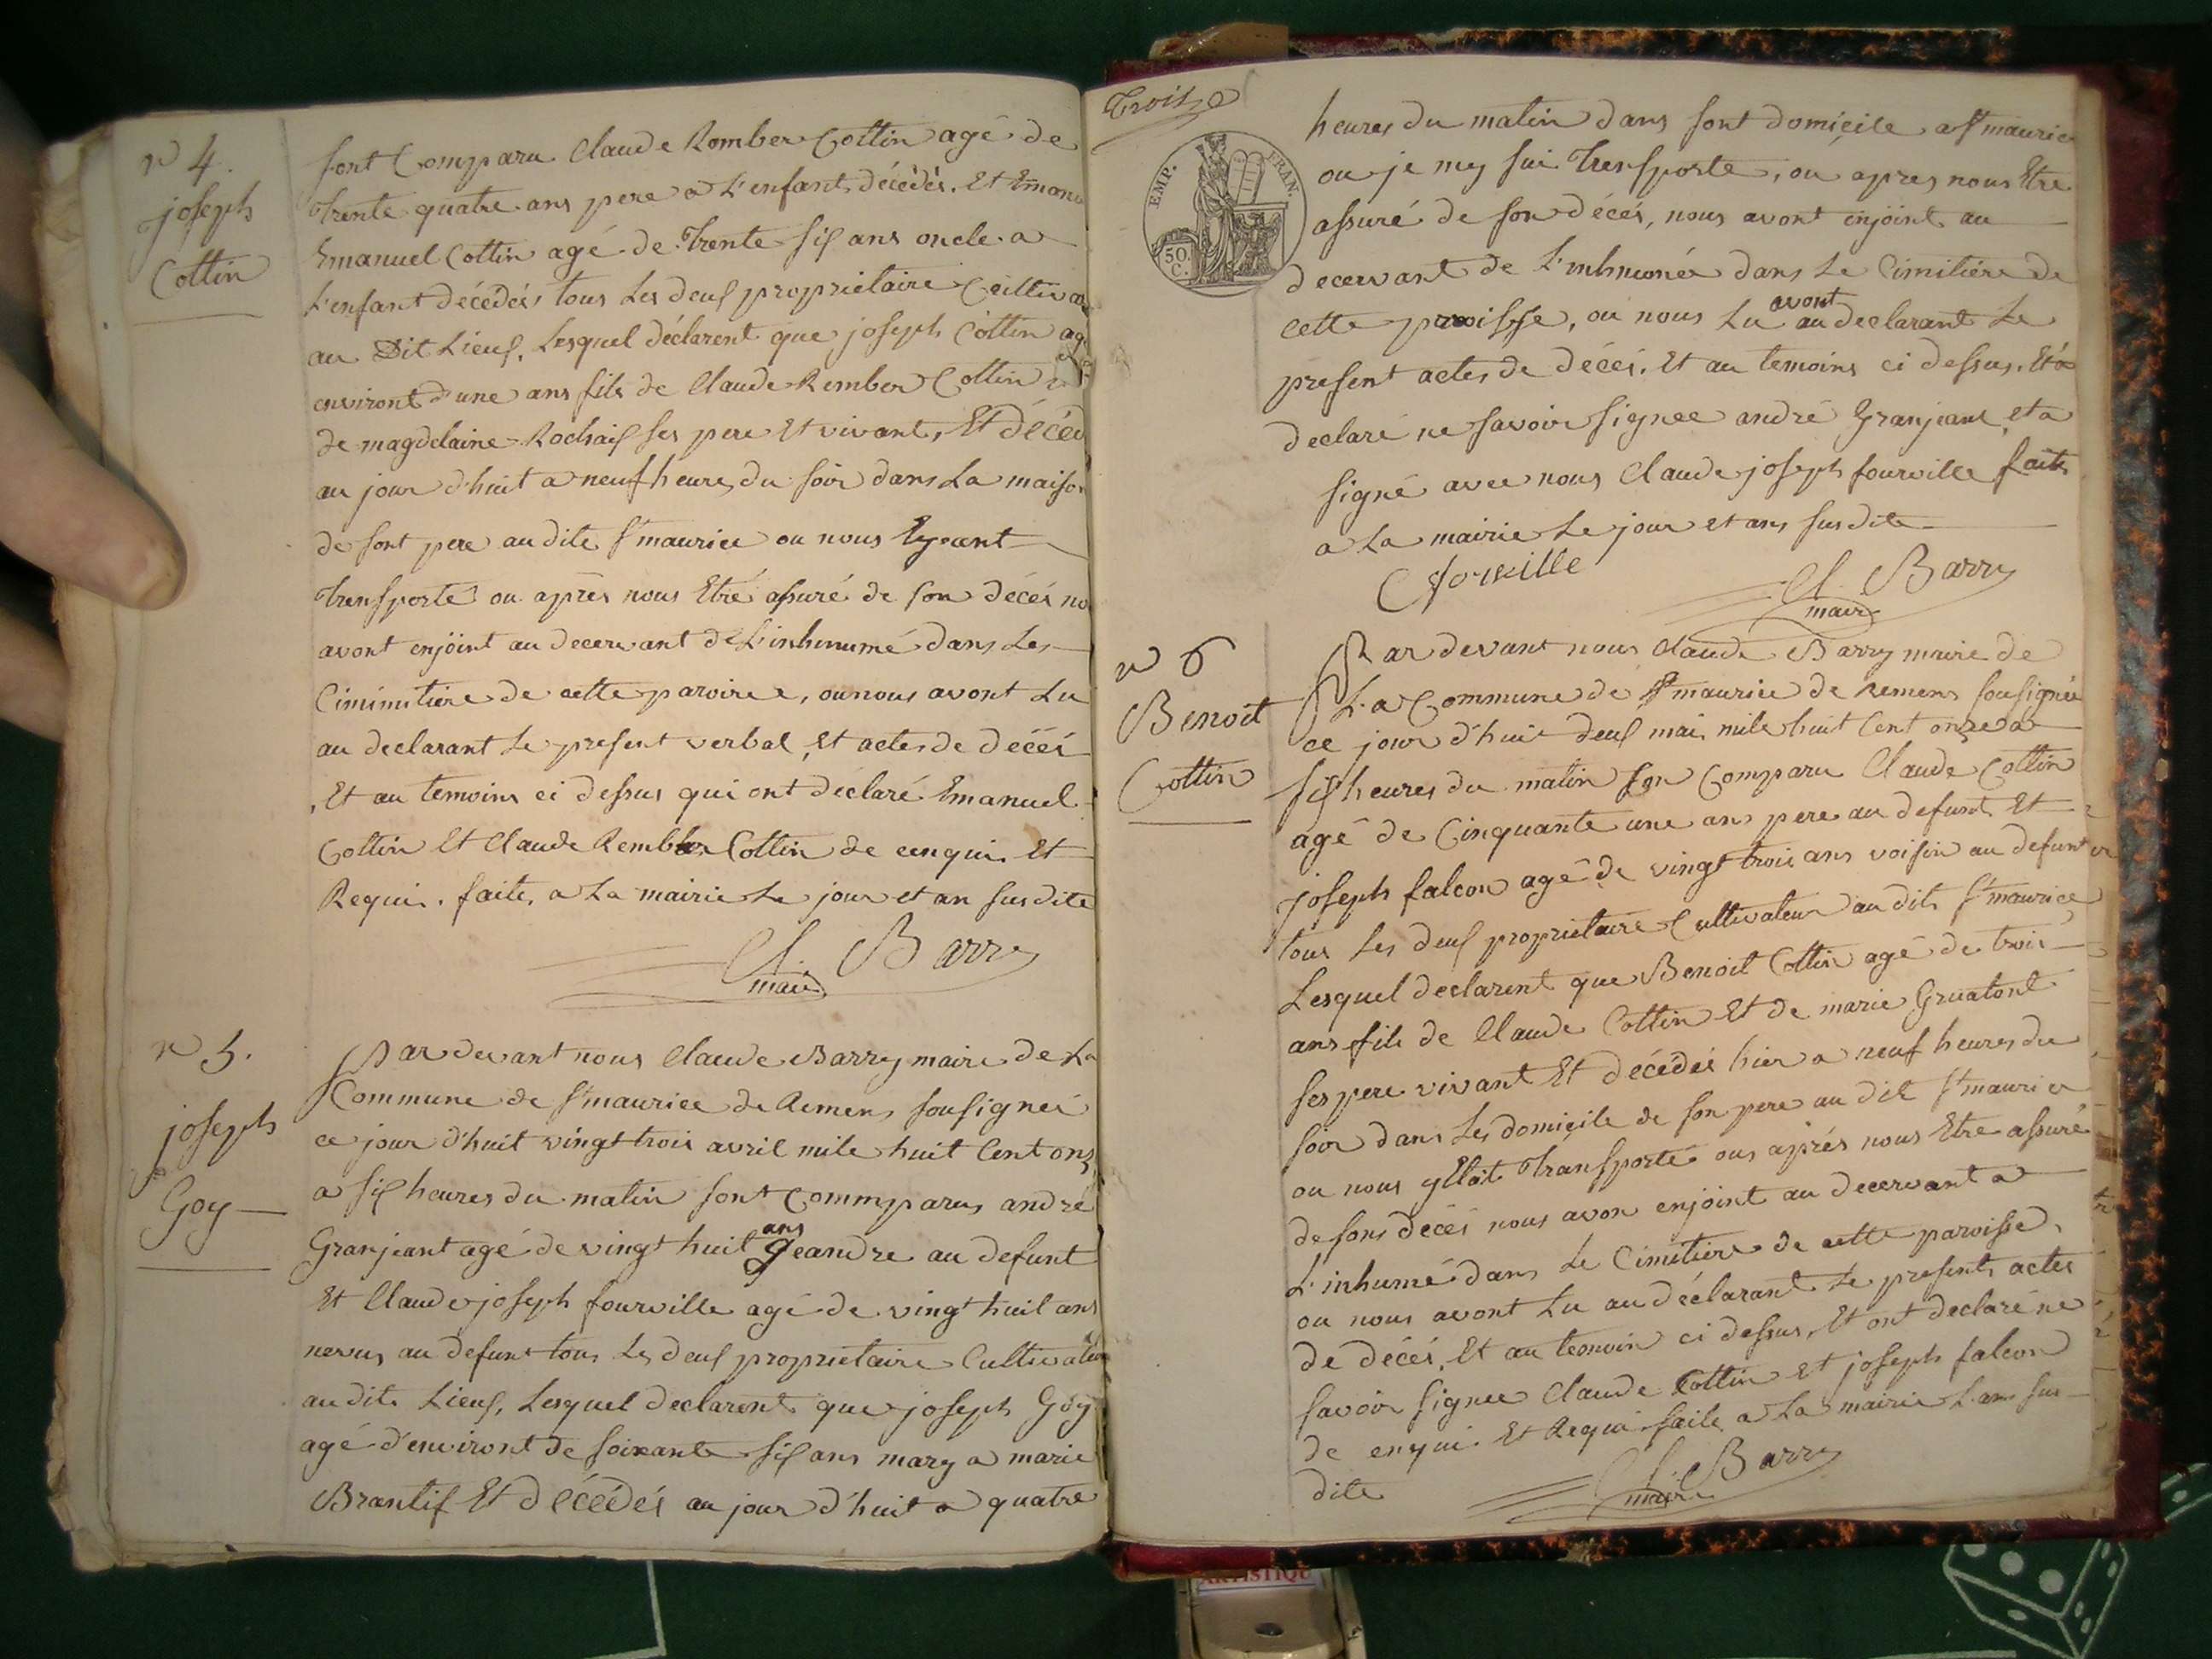 n 4.
joseph
Cottin
sont Comparu Claude Romber Cottin agé de
Trente quatre ans pere a L'enfant décédés. Et
Emanuel Cottin agé de Trente six ans oncle a
L'enfant décédés, tous Les deux proprietaire
au Dit Lieux, Lesquel déclarent que joseph Cottin
environt d'une ans fils de Claude Rember Cottin
de magdelaine Rochaix ses pere Et vivant, Et
au jour d'huit a neuf heures du soir dans La maison
de sont pere au dite St maurice ou nous Eyeant
Trensporté ou apres nous Etre assuré de son décés
avont enjöint au decervant de L'inhmumé dans Les
Cimimitiere de cette paroire, ou nous avont Lu
au declarant Le present verbal, Et actes de décés
, Et au temoins ci dessus qui ont déclaré Emanuel
Cottin Et Claude Rember Cottin de enqui. Et
Requi. faite, a La mairie Le jour et an susdite
Cl. Barry
maire
n 5.
joseph
Goy
Par devant nous Claude Barry maire de La
Commune de St maurice de Remens sousigneé
ce jour d'huit vingt trois avril mile huit Cent
a six heures du matin sont Commparus andré
Granjeant agé de vingt huit ans geandre au defunt
Et Claude joseph fourville agé de vingt huit ans
neveus au defunt tous Les deux proprietaire Cultivateur
au dite Lieux, Lesquel declarent que joseph Goy
agé d'environt de soixante six ans mary a marie
Brantif Et décédés au jour d'huit a quatre
Troise
EMP. FRAN.
50. C.
heures du matin dans sont domicile a St maurice
ou je my sui Trensporte, ou apres nous Etre
assuré de son décés, nous avont enjöint au
decervant de L'inhmonée dans Le Cimitiére de
cette paroisse, ou nous Lu avont au declarant Le
present actes de décés. Et au temoins ci dessus. Et a
declaré ne savoir signee andré Granjeant, et a
signé avec nous Claude joseph fourville faite
a La mairie Le jour et ans susdite
Cl. Barry
maire
n 6
Benoit
Cottin
Par devant nous Claude Barry maire de
La Commune de St maurice de Remens sousignée
ce jour d'hui deux mai mile huit Cent onze a
six heures du matin son Comparu Claude Cottin
agé de Cinquante une ans pere au defunt Et
joseph falcon agé de vingt trois ans voisin au defunt
tous Les deux proprietaire Cultivateur au dite St maurice
Lesquel declarent que Benoit Cottin agé de trois
ans fils de Claude Cottin Et de marie Gruatont
ses pere vivant Et décédés hier a neuf heures du
soir dans Les domicile de son pere au dit St maurice
ou nous Transporté ous aprés nous Etre assuré
de sons décés nous avon enjoint au decervant a
L'inhumé dans Le Cimitiere de cette paroisse,
ou nous avont Lu au déclarant Le presents actes
de décés, Et au temoin ci dessus, Et ont declaré ne
savoir signee Claude Cottin Et joseph falcon
de enqui. Et Requi faite a La mairie L'an sus
dite
Cl. Barry
maire
ARTISTIQU